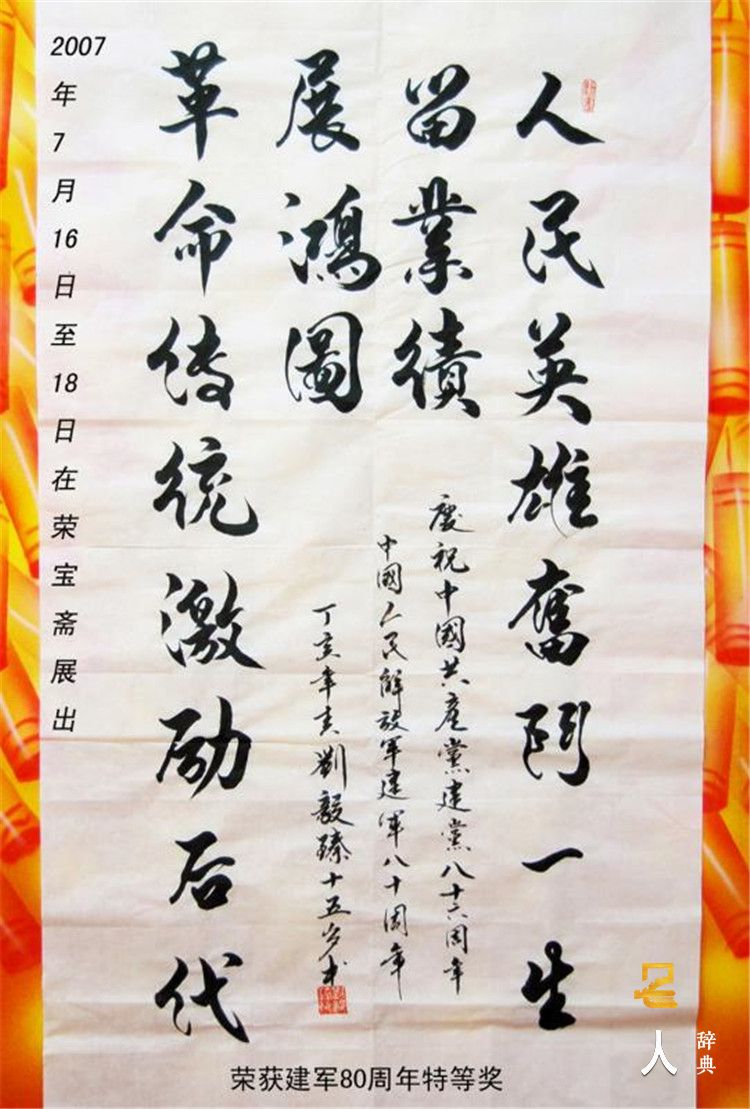 人民英雄奮鬥一生
留業績
展鴻圖
革命傳統激励后代
慶祝中國共產黨建黨八十六周年
中國人民解放軍建軍八十周年
丁亥年劉毅臻十五岁书
2007年7月16日至18日在荣宝斋展出
荣获建军80周年特等奖
人
辞典